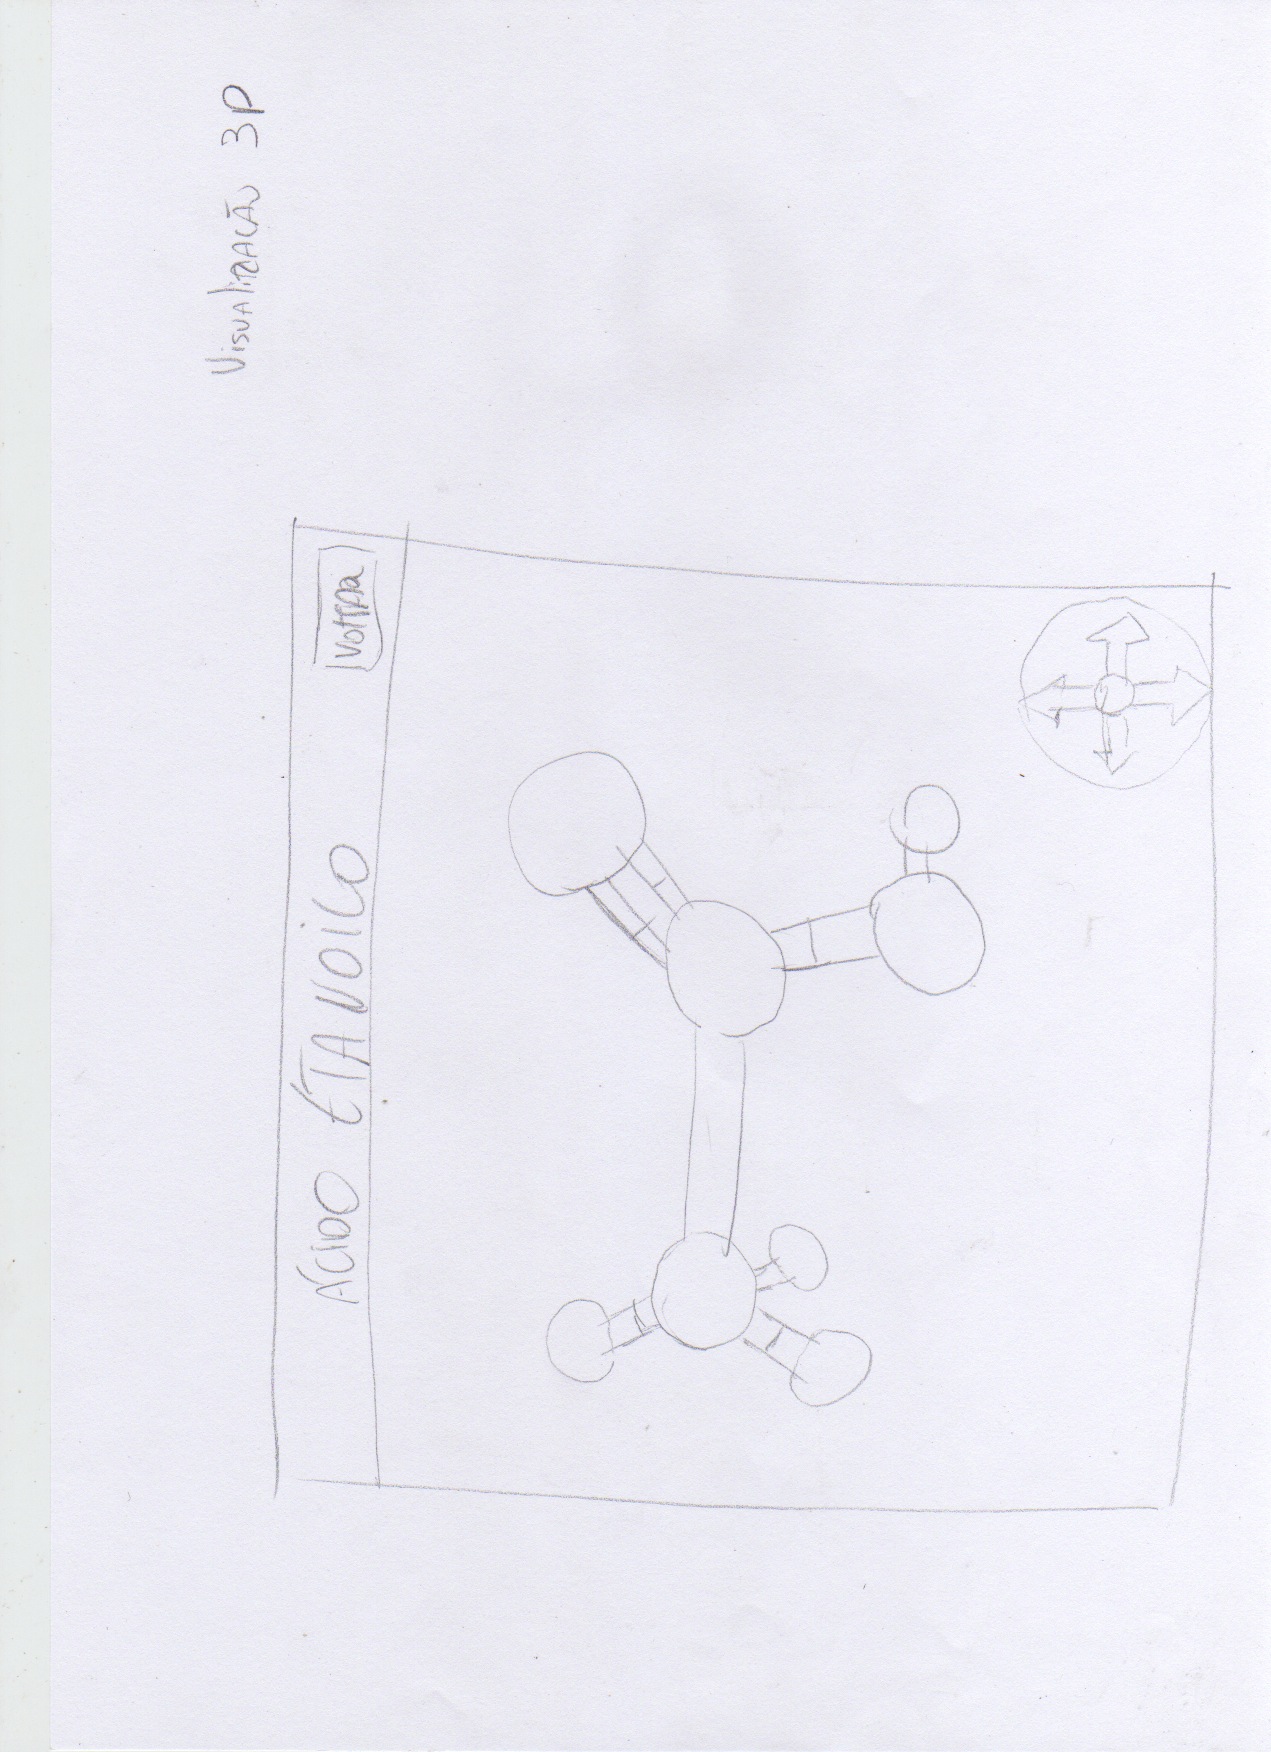 Visualização 3D
Ácido Etanoico
Voltar